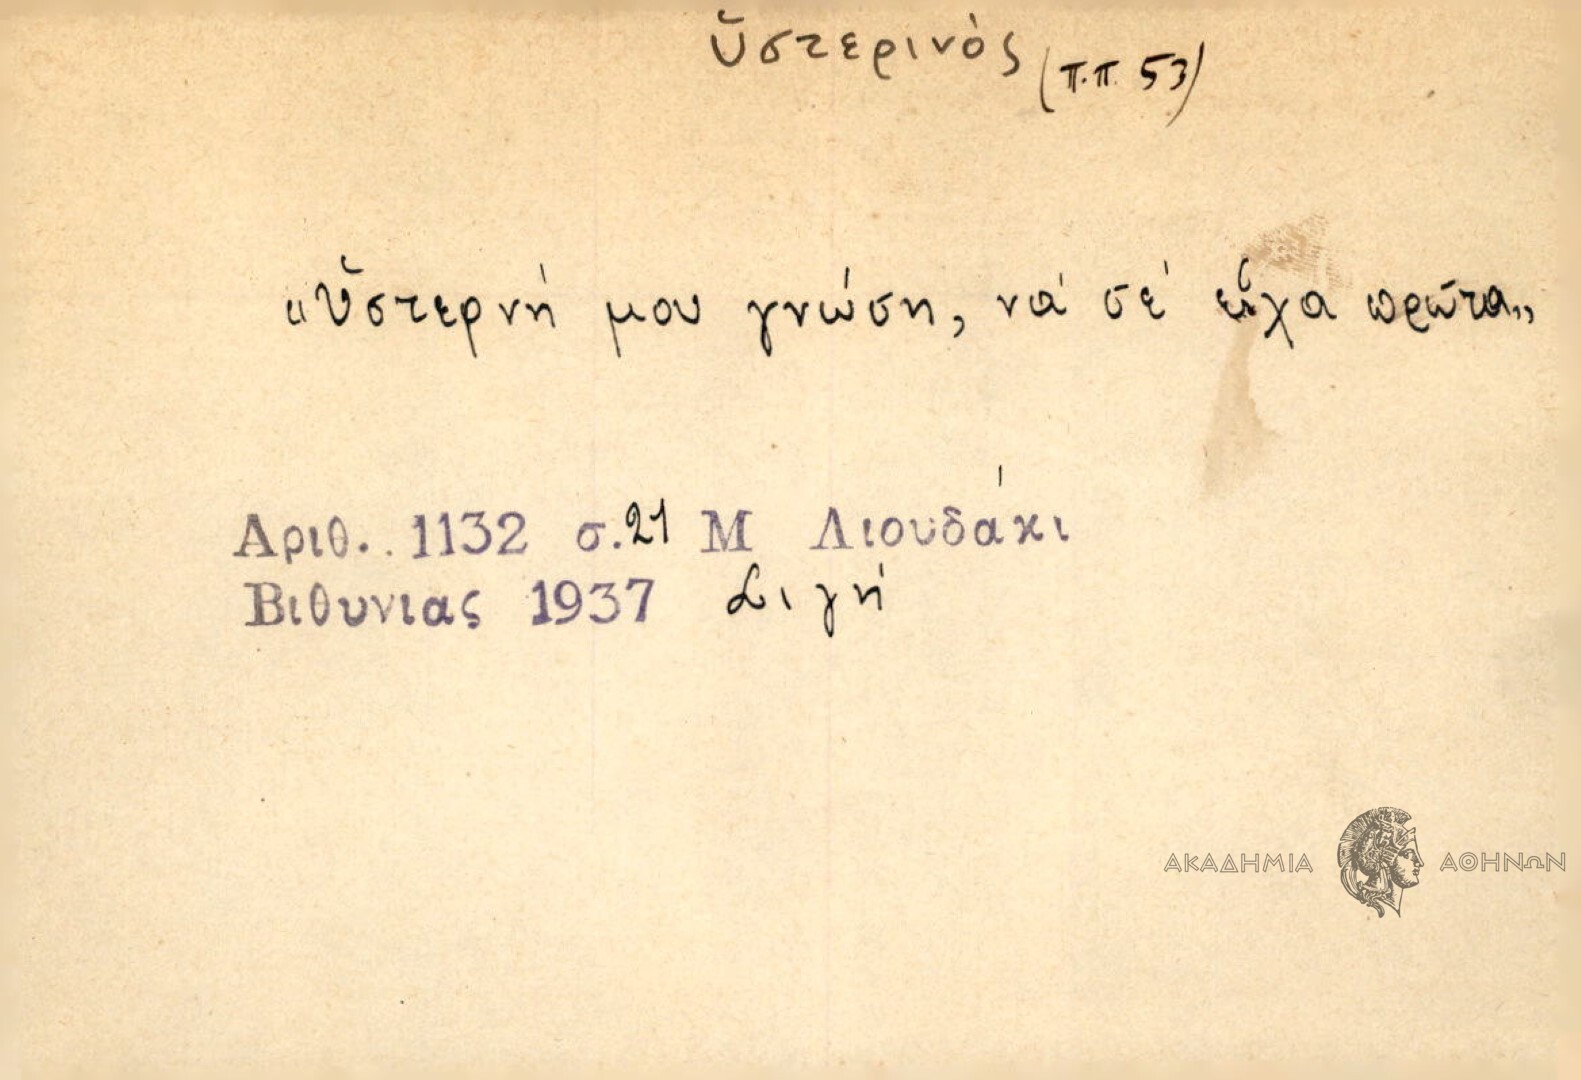 ὑστερινὸς (π.π. 53)
«Ὑστερνή μου γνώση, νά σέ εἶχα πρῶτα»
Αριθ. 1132 σ. 21 Μ Λιουδάκι
Βιθυνιας 1937 Σιγή
ΑΚΑΔΗΜΙΑ ΑΘΗΝΩΝ